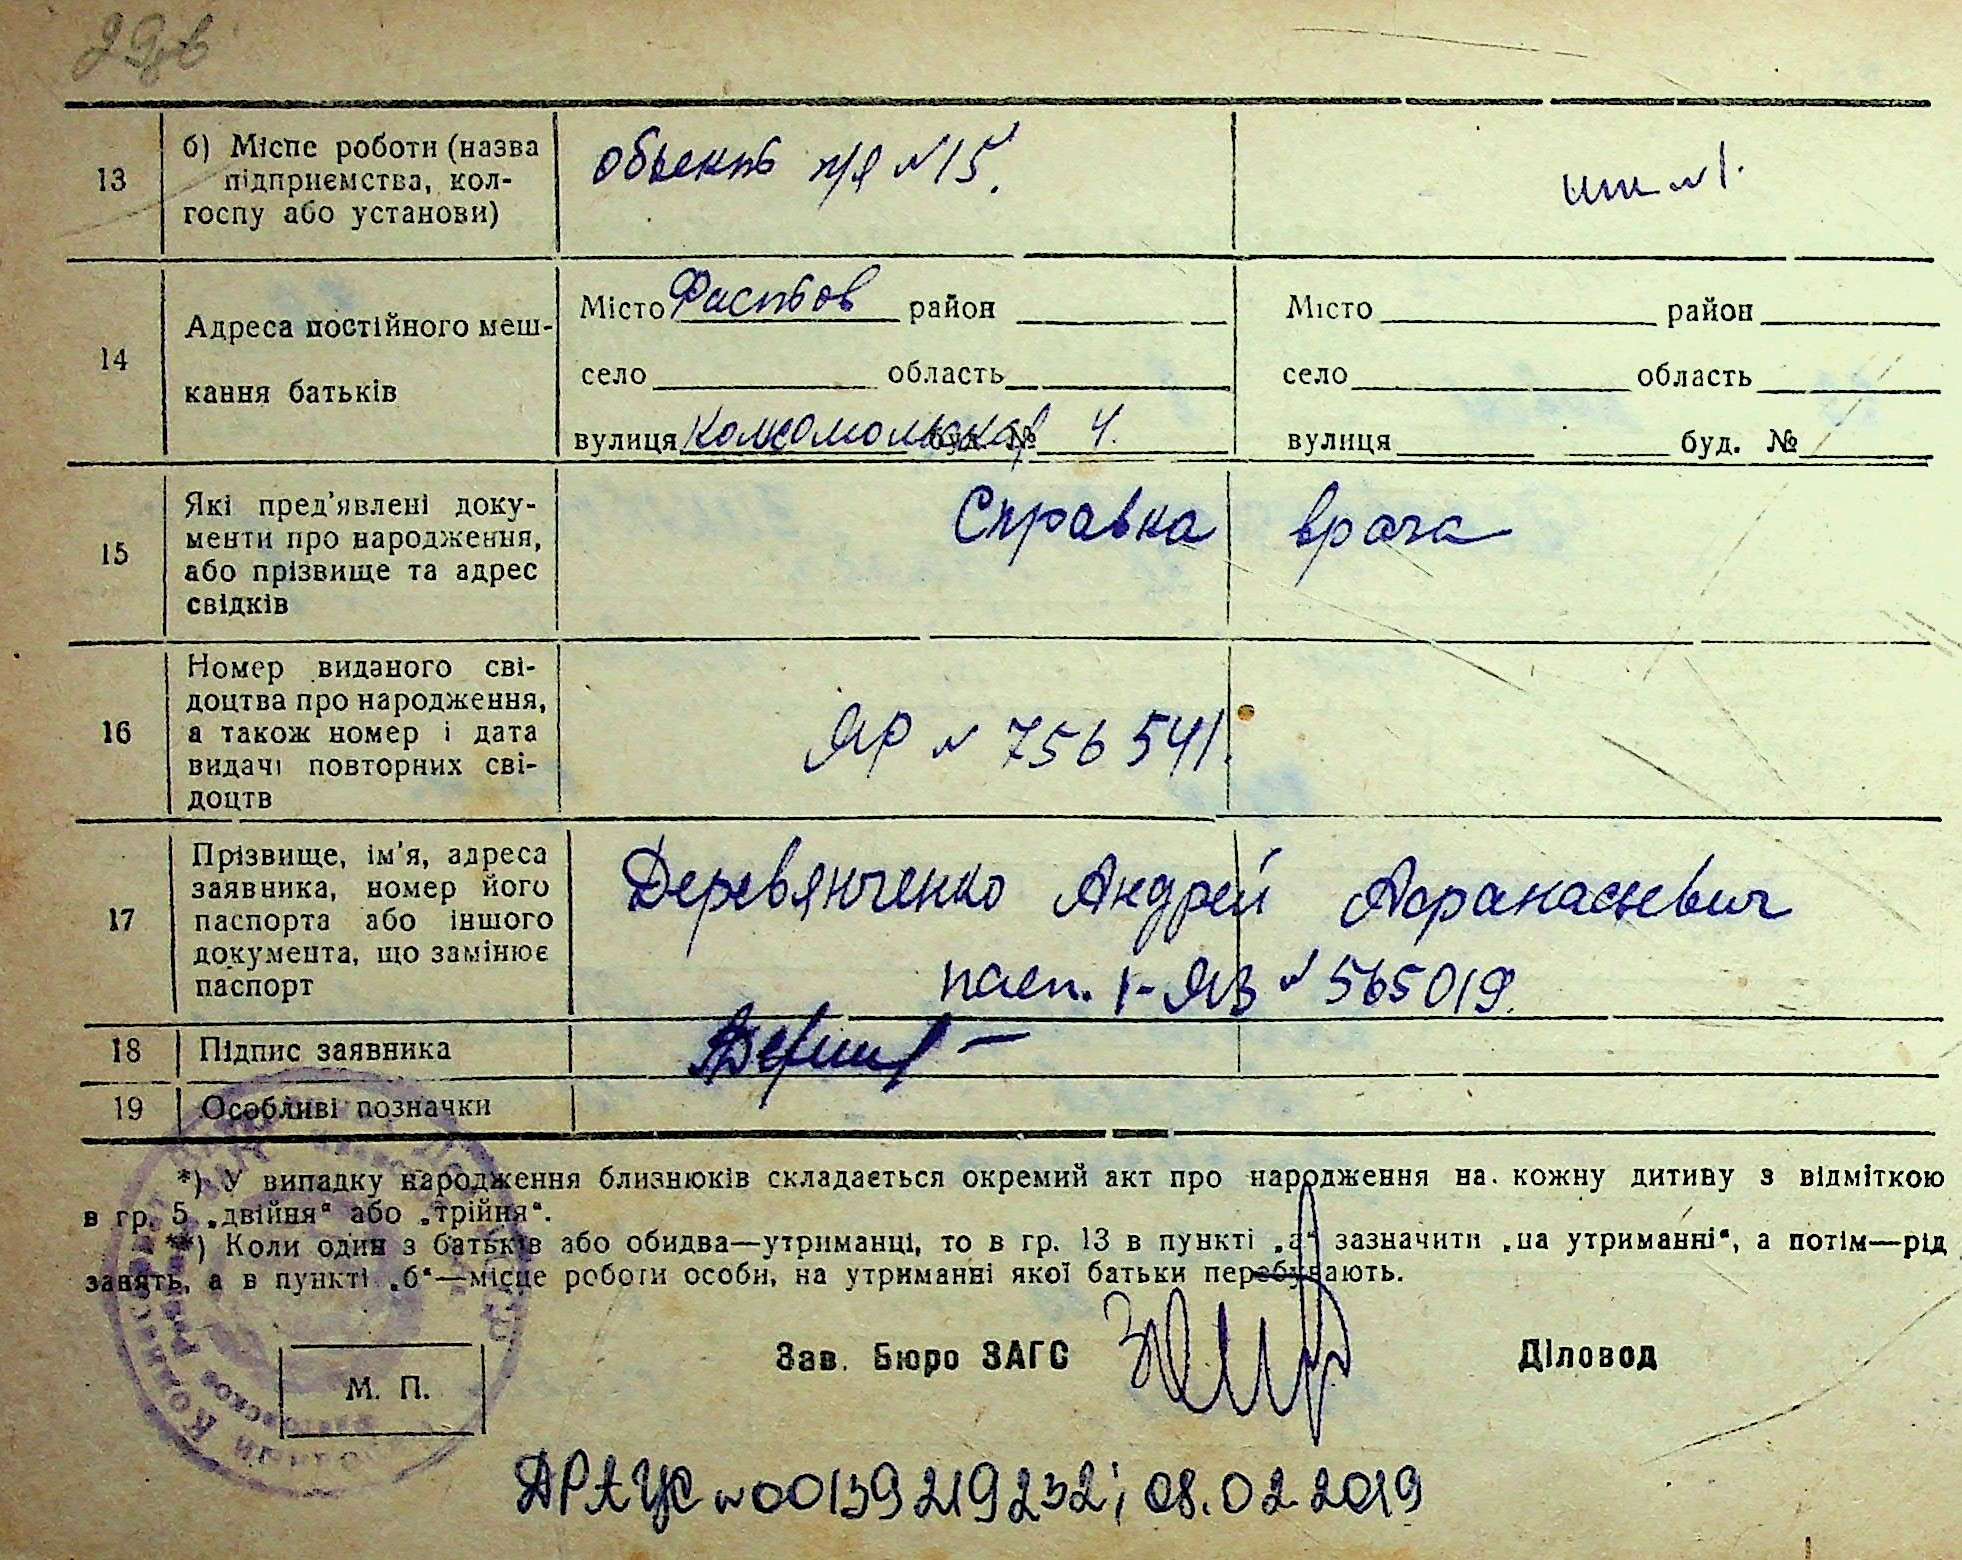 13
б) Місце роботи (назва
підприємства, кол-
госпу або установи)
объект п/я №15.
шк №1.
14
Адреса постійного меш-
кання батьків
Місто Фастов район
село область
вулиця Комсомольская буд. № 4.
Місто район
село область
вулиця буд. №
15
Які пред'явлені доку-
менти про народження,
або прізвище та адрес
свідків
Справка врача
16
Номер виданого сві-
доцтва про народження,
а також номер і дата
видачі повторних сві-
доцтв
ЯР № 756541.
17
Прізвище, ім'я, адреса
заявника, номер його
паспорта або іншого
документа, що замінює
паспорт
Деревянченко Андрей Афранасьевич
пасп. I-ЯВ № 565019.
18 Підпис заявника
19 Особливі позначки
*) У випадку народження близнюків складається окремий акт про народження на кожну дитину з відміткою
в гр. 5 „двійня“ або „трійня“.
**) Коли один з батьків або обидва—утриманці, то в гр. 13 в пункті „а“ зазначити „на утриманні“, а потім—рід
занять, а в пункті „б“—місце роботи особи, на утриманні якої батьки перебувають.
Зав. Бюро ЗАГС Діловод
М. П.
ДРАЦС №00139219232; 08.02.2019